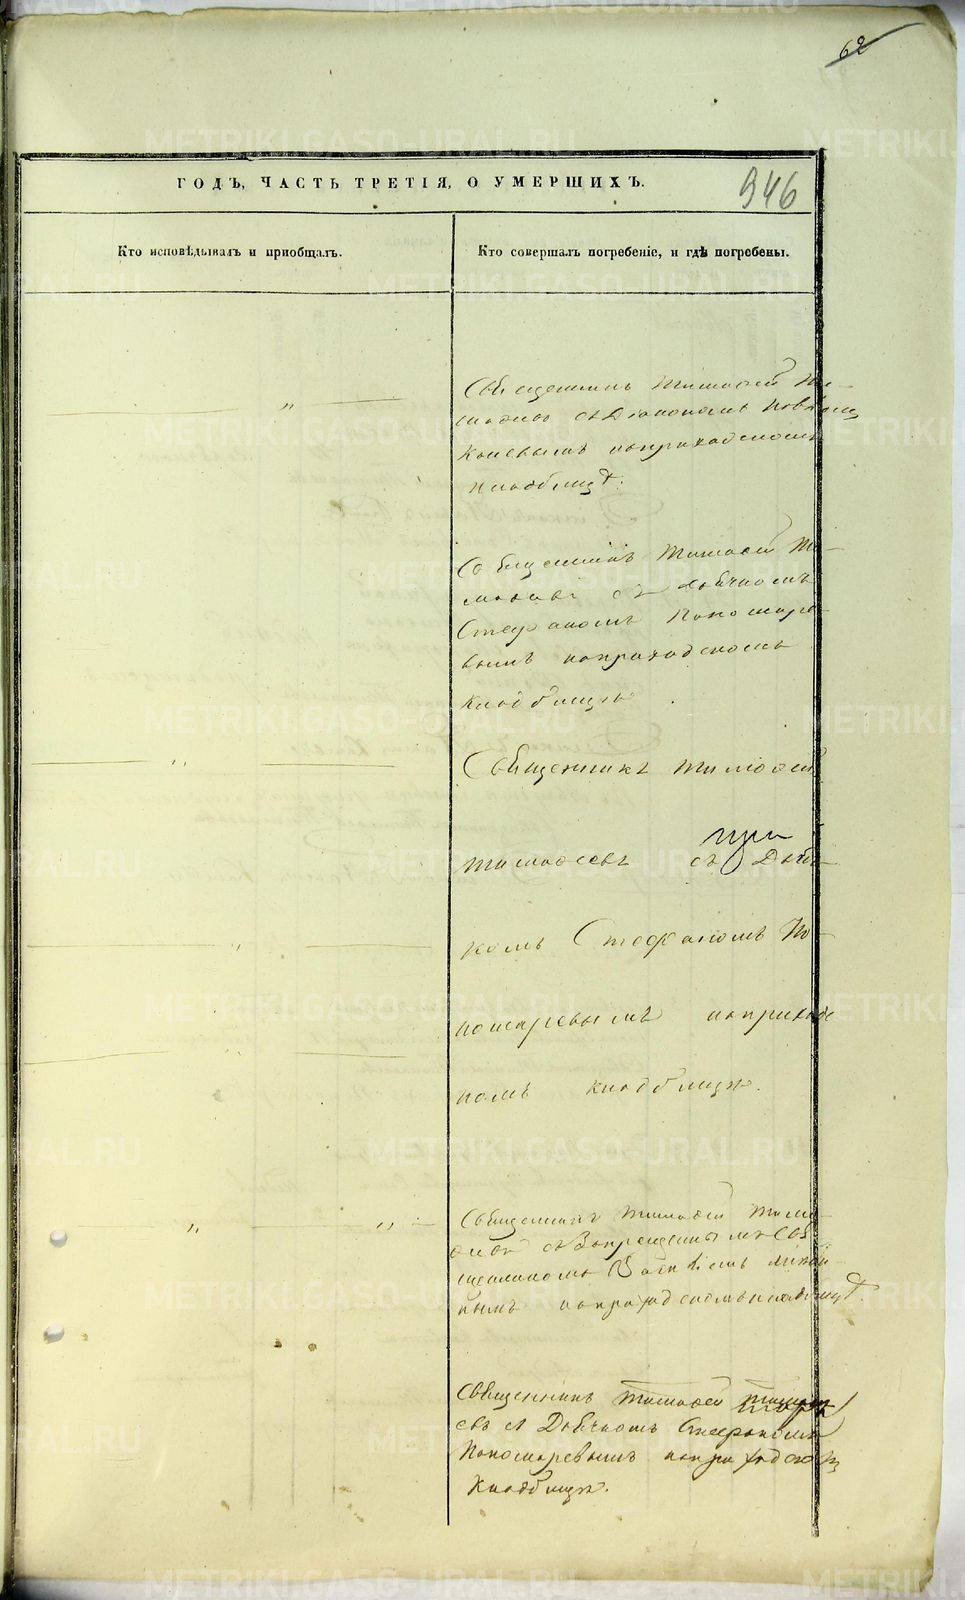 62
ГОДЪ, ЧАСТЬ ТРЕТІЯ, О УМЕРШИХЪ.
946
Кто исповѣдывалъ и пріобщалъ.
Кто совершалъ погребеніе, и гдѣ погребены.
Священникъ Тимофей Ти-
Коневымъ наприходскомъ
кладбищѣ.
Священникъ Тимофей Ти-
съ дьячкомъ
Стефаномъ Пономаре
вымъ наприходскомъ
кладбищѣ
Священникъ Тимофей
при
Тимофеевъ съ Дьяч
комъ Стефаномъ По-
номаревымъ наприходс
комъ кладбищѣ.
Священникъ Тимофей Тимо-
съ Запрещеннымъ Свя
щенникомъ
нымъ наприходскомъ кладбищѣ.
Священникъ Тимофей
евъ съ Дьячкомъ Стефаномъ
Пономаревымъ наприходском
кладбищѣ.
METRIKI.GASO-URAL.RU